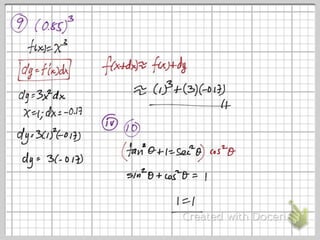 ⑨ (0.85)³
f(x)=x³
dy=f'(x)dx
dy=3x²dx
x=1; dx=-0.17
dy=3(1)²(-0.17)
dy= 3(-0.17)
f(x+dx)≈ f(x)+dy
≈ (1)³+(3)(-0.17)
4
iv ⑩
(tan²θ+1=sec²θ) cos²θ
sin²θ+cos²θ = 1
1=1
Created with Doceri